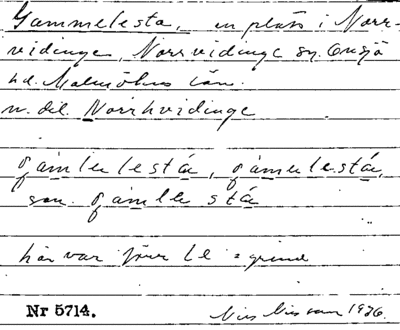 Gammelesta, en plats i Norr-
vidinge, Norrvidinge sn, Onsjö
hd. Malmöhus län.
n. dil. Norrhvidinge
gamlelestá, gamelestá,
son. gamle stá
här var förr le = grind
Nr 5714. Nils Nilsson 1926.